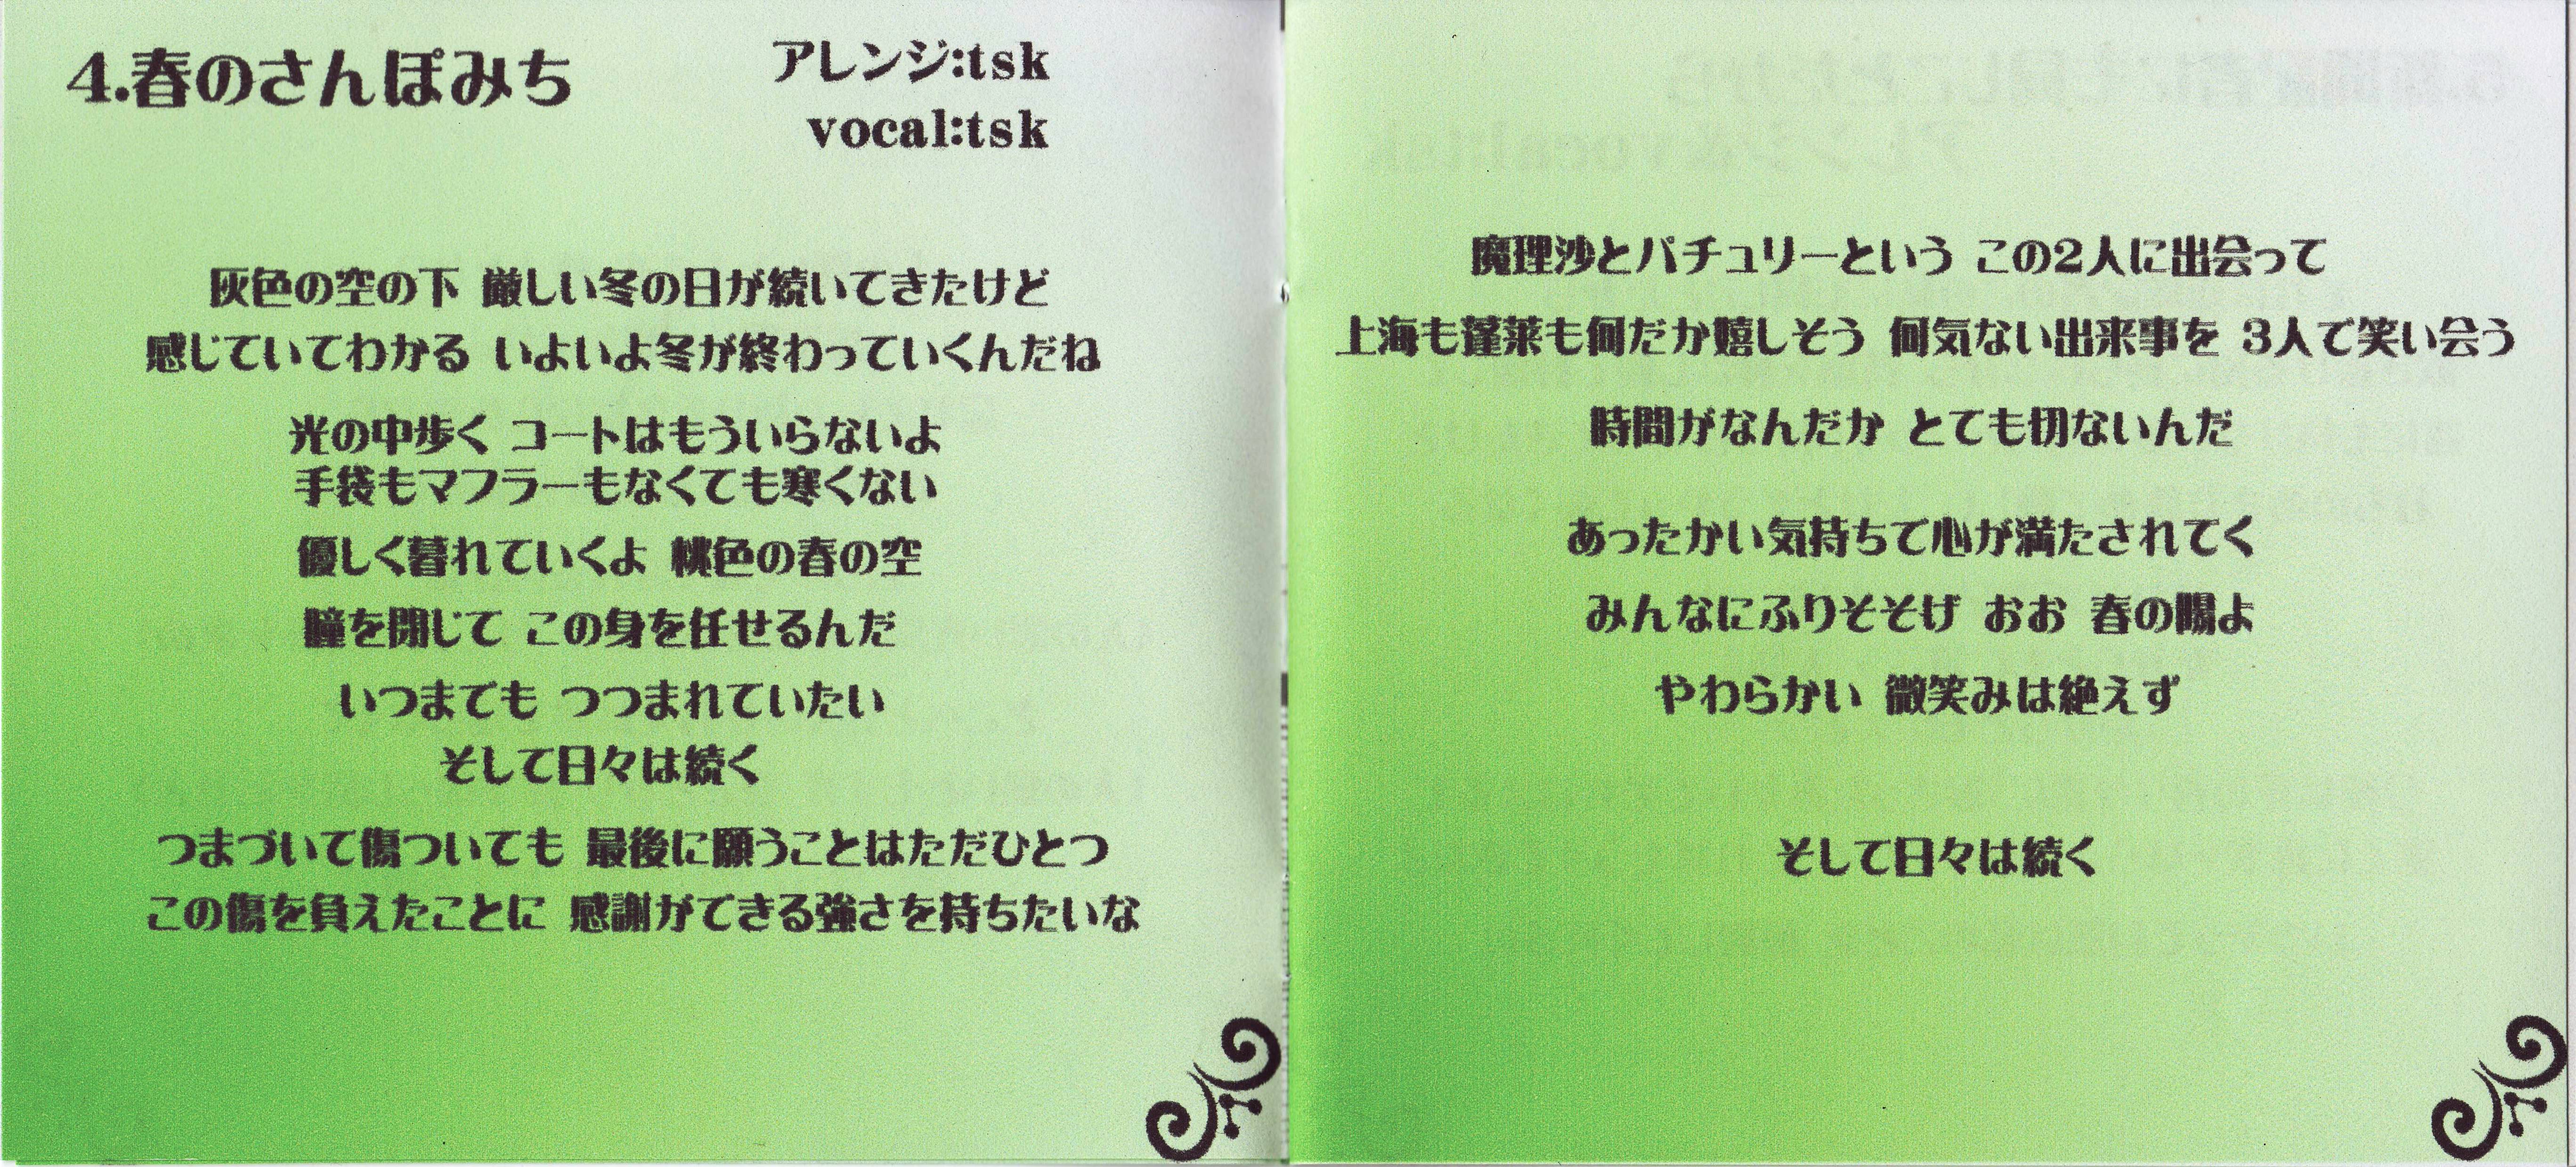 4.春のさんぽみち
アレンジ:tsk
vocal:tsk
灰色の空の下 厳しい冬の日が続いてきたけど
感じていてわかる いよいよ冬が終わっていくんだね
光の中歩く コートはもういらないよ
手袋もマフラーもなくても寒くない
優しく暮れていくよ 桃色の春の空
瞳を閉じて この身を任せるんだ
いつまでも つつまれていたい
そして日々は続く
つまづいて傷ついても 最後に願うことはただひとつ
この傷を負えたことに 感謝ができる強さを持ちたいな
魔理沙とパチュリーという この2人に出会って
上海も蓬莱も何だか嬉しそう 何気ない出来事を 3人で笑い会う
時間がなんだか とても切ないんだ
あったかい気持ちで心が満たされてく
みんなにふりそそげ おお 春の陽よ
やわらかい 微笑みは絶えず
そして日々は続く